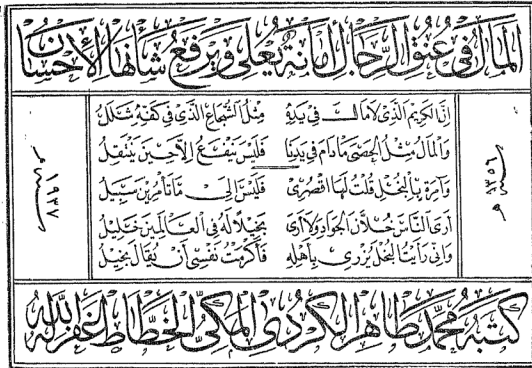 المال في عنق الرجال أمانة يعلى ويرفع شأنها الإحسان
إن الكريم الذي لا مال في يده مثل الشجاع الذي في كفه شلل
والمال مثل الحصى ما دام في يدنا فليس ينفع إلا حين ينتقل
وآمرة بالبخل قلت لها اقصري فليس إلى ما تأمرين سبيل
أرى الناس خلان الجواد ولا أرى بخيلا له في العالمين خليل
وإني رأيت البخل يزري بأهله فأكرمت نفسي أن يقال بخيل
سنة ١٣٥٦ هـ
سنة ١٩٣٧ م
كتبه محمد طاهر الكردي المكي الخطاط غفر الله له